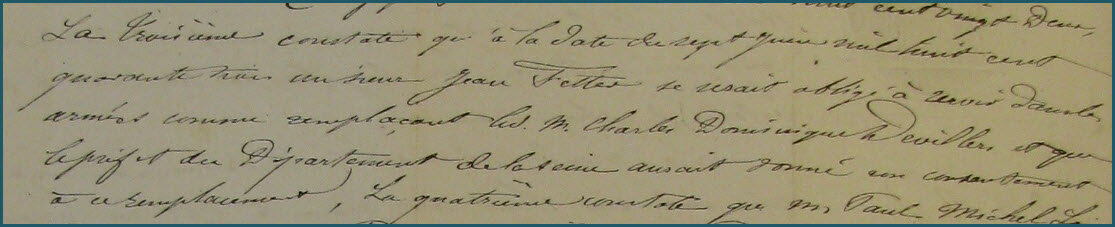 cent vingt Deux,
La Troisième constate qu'à la date du sept juin mil huit cent
quarante trois un sieur Jean Fetter se serait obligé à servir dans les
armées comme remplaçant led. M. Charles Dominique Devillers et que
le préfet du Département de la Seine aurait donné son consentement
à ce remplacement, La quatrième constate que M. Paul Michel